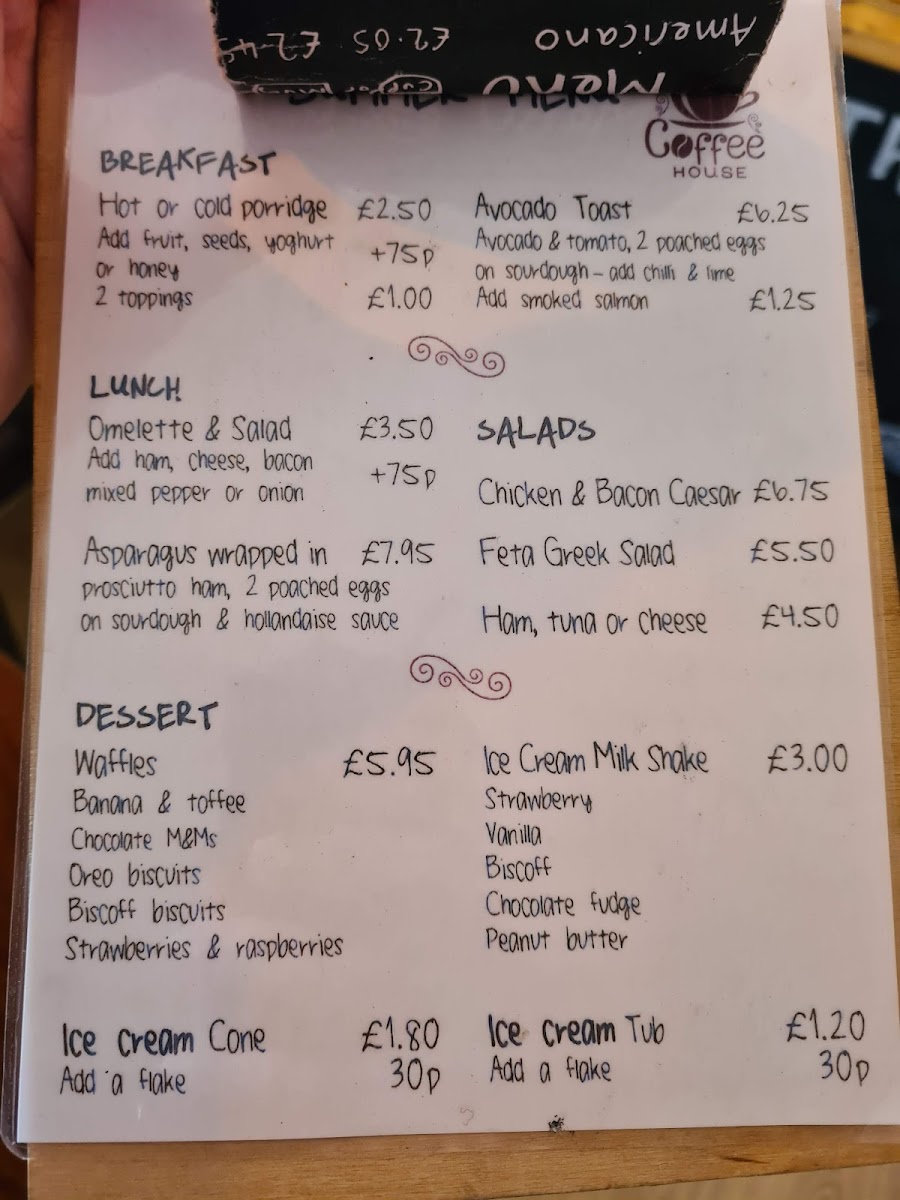 Americano £2.05 £2.45
Menu
SUMMER MENU
Coffee
HOUSE
BREAKFAST
Hot or cold porridge £2.50
Add fruit, seeds, yoghurt
or honey +75p
2 toppings £1.00
Avocado Toast £6.25
Avocado & tomato, 2 poached eggs
on sourdough – add chilli & lime
Add smoked salmon £1.25
LUNCH
Omelette & Salad £3.50
Add ham, cheese, bacon
mixed pepper or onion +75p
Asparagus wrapped in £7.95
prosciutto ham, 2 poached eggs
on sourdough & hollandaise sauce
SALADS
Chicken & Bacon Caesar £6.75
Feta Greek Salad £5.50
Ham, tuna or cheese £4.50
DESSERT
Waffles £5.95
Banana & toffee
Chocolate M&Ms
Oreo biscuits
Biscoff biscuits
Strawberries & raspberries
Ice Cream Milk Shake £3.00
Strawberry
Vanilla
Biscoff
Chocolate fudge
Peanut butter
Ice cream Cone £1.80
Add a flake 30p
Ice cream Tub £1.20
Add a flake 30p